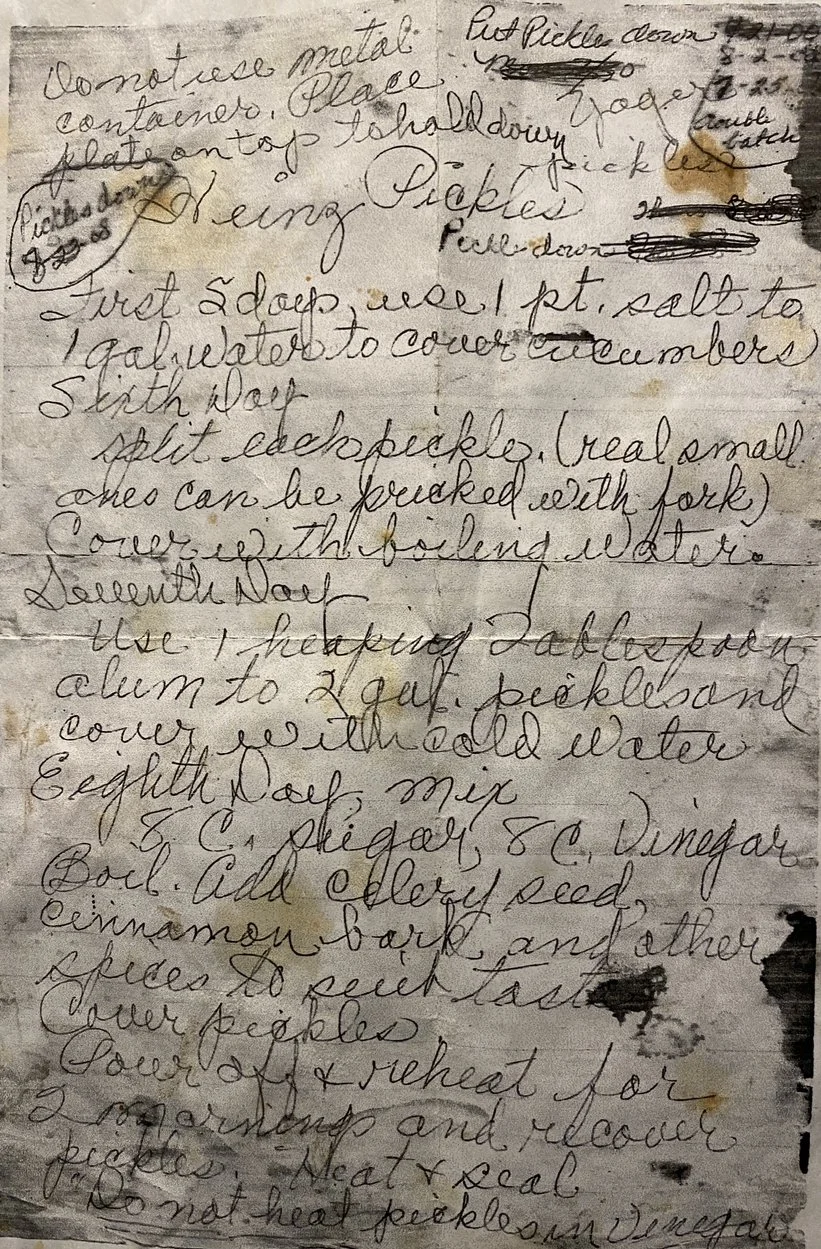 Put Pickle down 9-21-00
8-2-
Do not use metal
7-25-
container. Place
Yoger
double
batch
plate on top to hold down
pickles
Pickles down
8-22-08
Heinz Pickles
Pickle down
First 5 days, use 1 pt. salt to
1 gal. water to cover cucumbers
Sixth Day
split each pickle. (real small
ones can be pricked with fork)
Cover with boiling water.
Seventh Day
Use 1 heaping Tablespoon
alum to 2 gal. pickles and
cover with cold water
Eighth Day, mix
8 C. sugar, 8 C. Vinegar
Boil. Add celery seed,
cinnamon bark, and other
spices to suit tast
Cover pickles.
Pour off & reheat for
2 mornings and recover
pickles. Heat & seal
Do not heat pickles in Vinegar